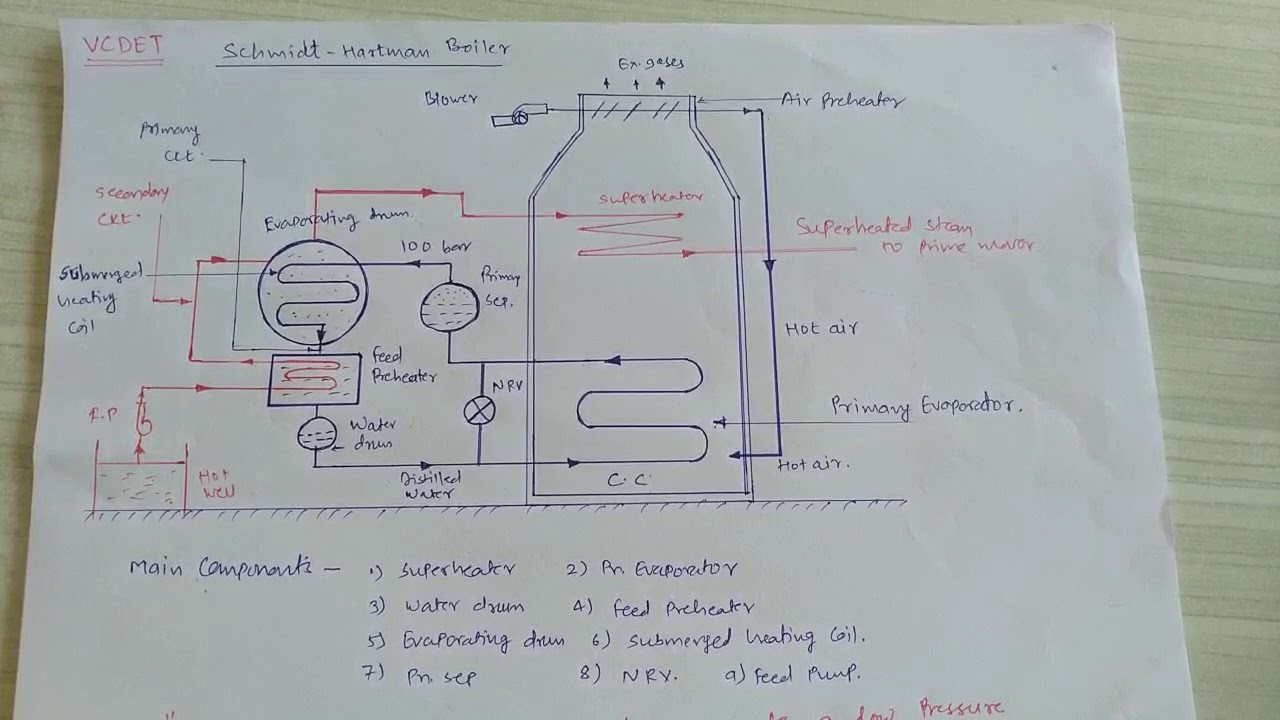 VCDET
Schmidt-Hartman Boiler
Ex. gases
Blower
Air Preheater
Primary
Ckt.
Secondary
Ckt.
Evaporating drum.
Superheator
100 bar
Superheated steam
to prime mover.
Submerged
heating
coil
Primay
Sep.
Hot air
Feed
Preheater
NRV
Primary Evaporator.
F.P
Water
drum
Hot air.
Hot
well
Distilled
water
C.C.
Main Components - 1) Superheater 2) Pri. Evaporator
3) Water drum 4) Feed Preheater
5) Evaporating drum 6) Submerged heating Coil.
7) Pri. sep 8) NRV. 9) Feed Pump.
Pressure